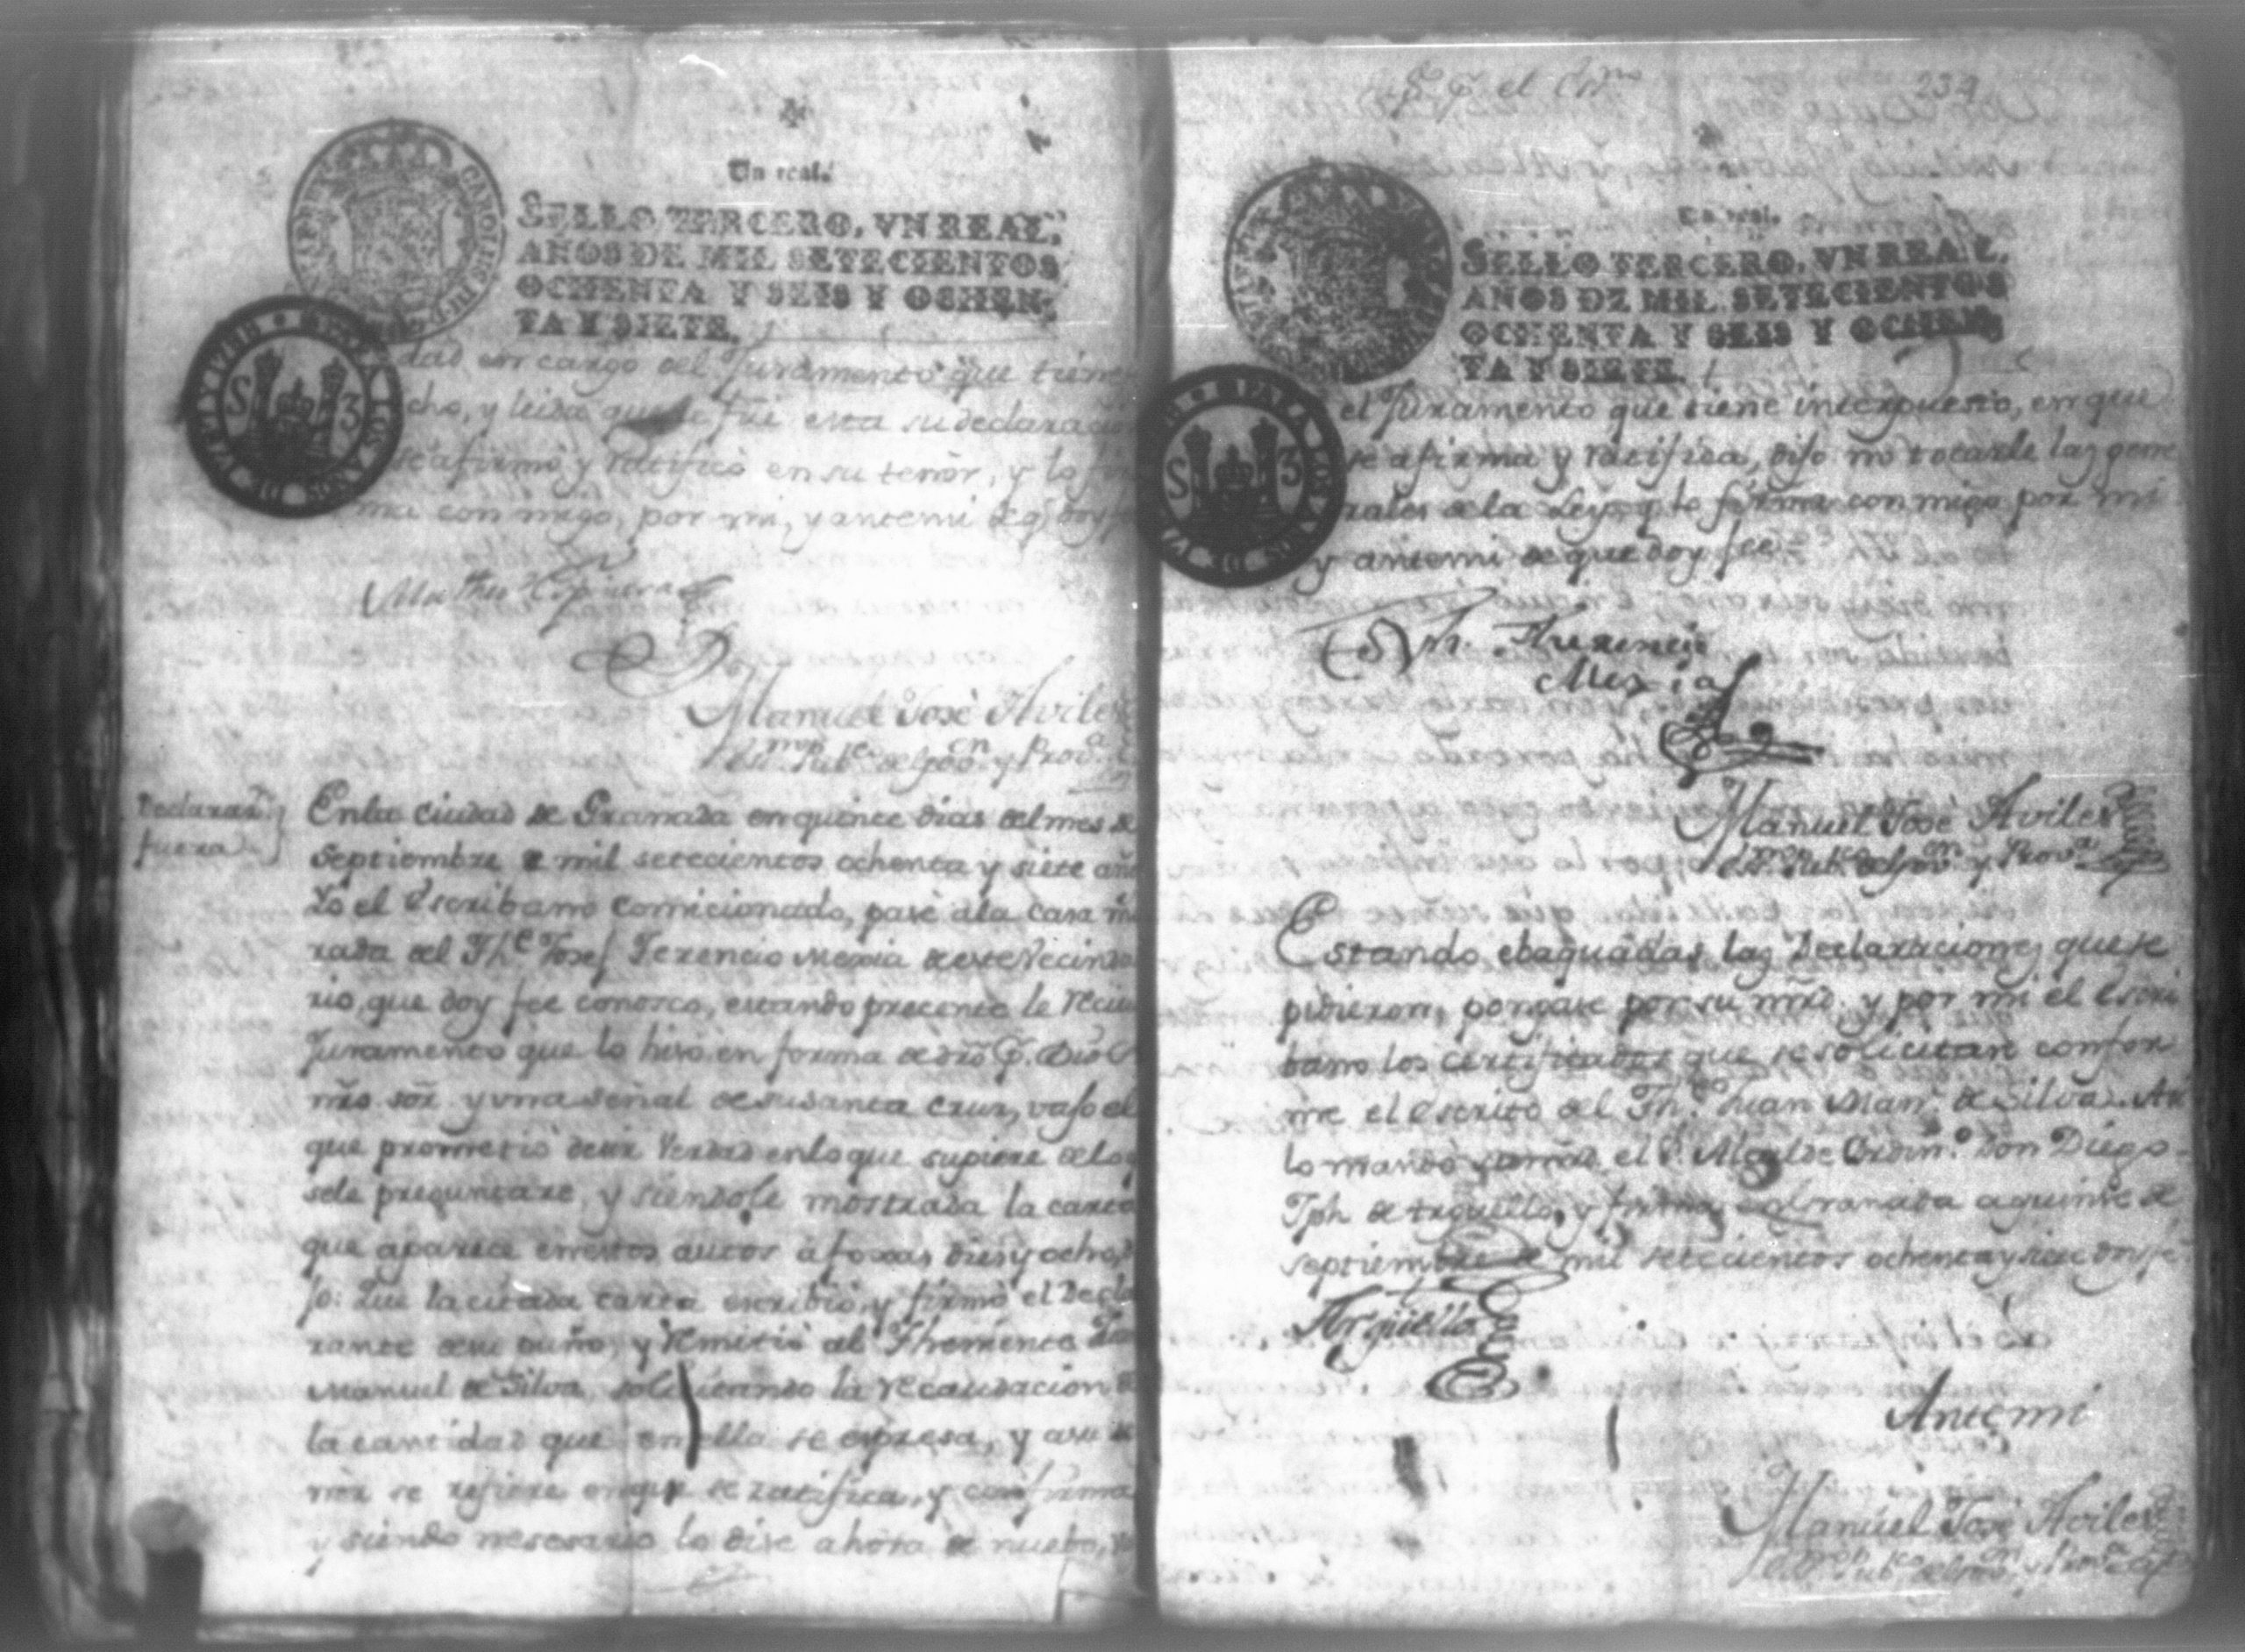 Un real.
SELLO TERCERO, VN REAL,
AÑOS DE MIL SETECIENTOS
OCHENTA Y SEIS Y OCHEN-
TA Y SIETE.
dad en cargo del Juramento que tiene
cho, y leida que le fué esta su declaracio
se afirmó y ratificó en su tenór, y lo fir
ma con migo, por mi, y antemi de q doy
Matheo Espinosa
Manuel José Aviles
Essno. Pubco. de Govon. y Prova.
Declaraon.
fuera
Enla ciudad de Granada en quince dias del mes de
Septiembre de mil setecientos ochenta y siete añ
Yo el Escribano comicionado, pasé ala casa mo
rada del The. Josef Terencio Mexia de este Vecinda
rio, que doy fee conosco, estando precente le reciví
Juramento que lo hiso en forma de dro p. Dios
nro sor. y una señal de su santa cruz, vajo el
que prometió decir verdad enlo que supiere delo q
sele preguntare, y siendole mostrada la carta
que aparece en estos autos á foxas dies y ocho, di
jo: Que la citada carta escribió, y firmó el Decla
rante de su puño, y remitió al Theniente Juan
Manuel de Silva, solicitando la recaudacion de
la cantidad que en ella se expresa, y asu te
nor se refiere en que se ratifica, y confirma
y siendo nesesario lo dise ahora de nuebo,
p. p. el Essno.
239
Un real.
SELLO TERCERO, VN REAL,
AÑOS DE MIL SETECIENTOS
OCHENTA Y SEIS Y OCHEN-
TA Y SIETE.
el Juramento que tiene interpuesto, en que
se afirma y ratifica, dijo no tocarle las gene
rales de la Ley, y lo firma con migo por mi
y antemi de que doy fee
Jph. Therencio
Mexia
Manuel José Aviles
Essno. Pubco. de Govon. y Prova.
Estando ebaquadas las Declaraciones que se
pidieron, pongase por su mrd. y por mi el Escri
bano los certificados que se solicitan confor
me el escrito del The. Juan Manl. de Silva. Asi
lo mandó el Sr. Alcalde Ordino. Don Diego
Jph de Arguello, y firma en Granada a quince de
septiembre de mil setecientos ochenta y siete doy fe
Argüello
Antemi
Manuel José Aviles
Essno. Pubco. de Govon.